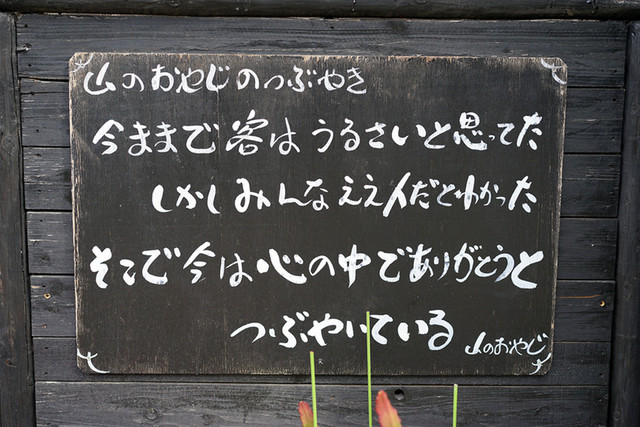 山のおやじのつぶやき
今ままで客はうるさいと思ってた
しかしみんなええ人だとわかった
そこで今は心の中でありがとうと
つぶやいている
山のおやじ